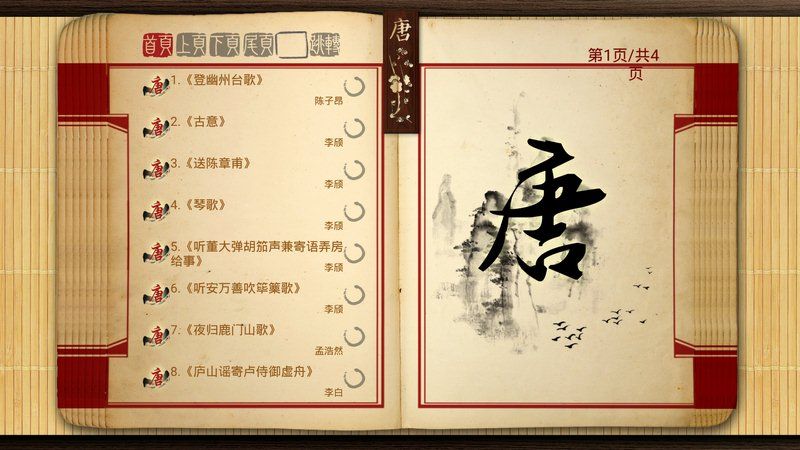 首頁 上頁 下頁 尾頁 跳轉
唐
第1页/共4
页
唐
1.《登幽州台歌》
陈子昂
唐
2.《古意》
李颀
唐
3.《送陈章甫》
李颀
唐
4.《琴歌》
李颀
唐
5.《听董大弹胡笳声兼寄语弄房
给事》
李颀
唐
6.《听安万善吹筚篥歌》
李颀
唐
7.《夜归鹿门山歌》
孟浩然
唐
8.《庐山谣寄卢侍御虚舟》
李白
唐